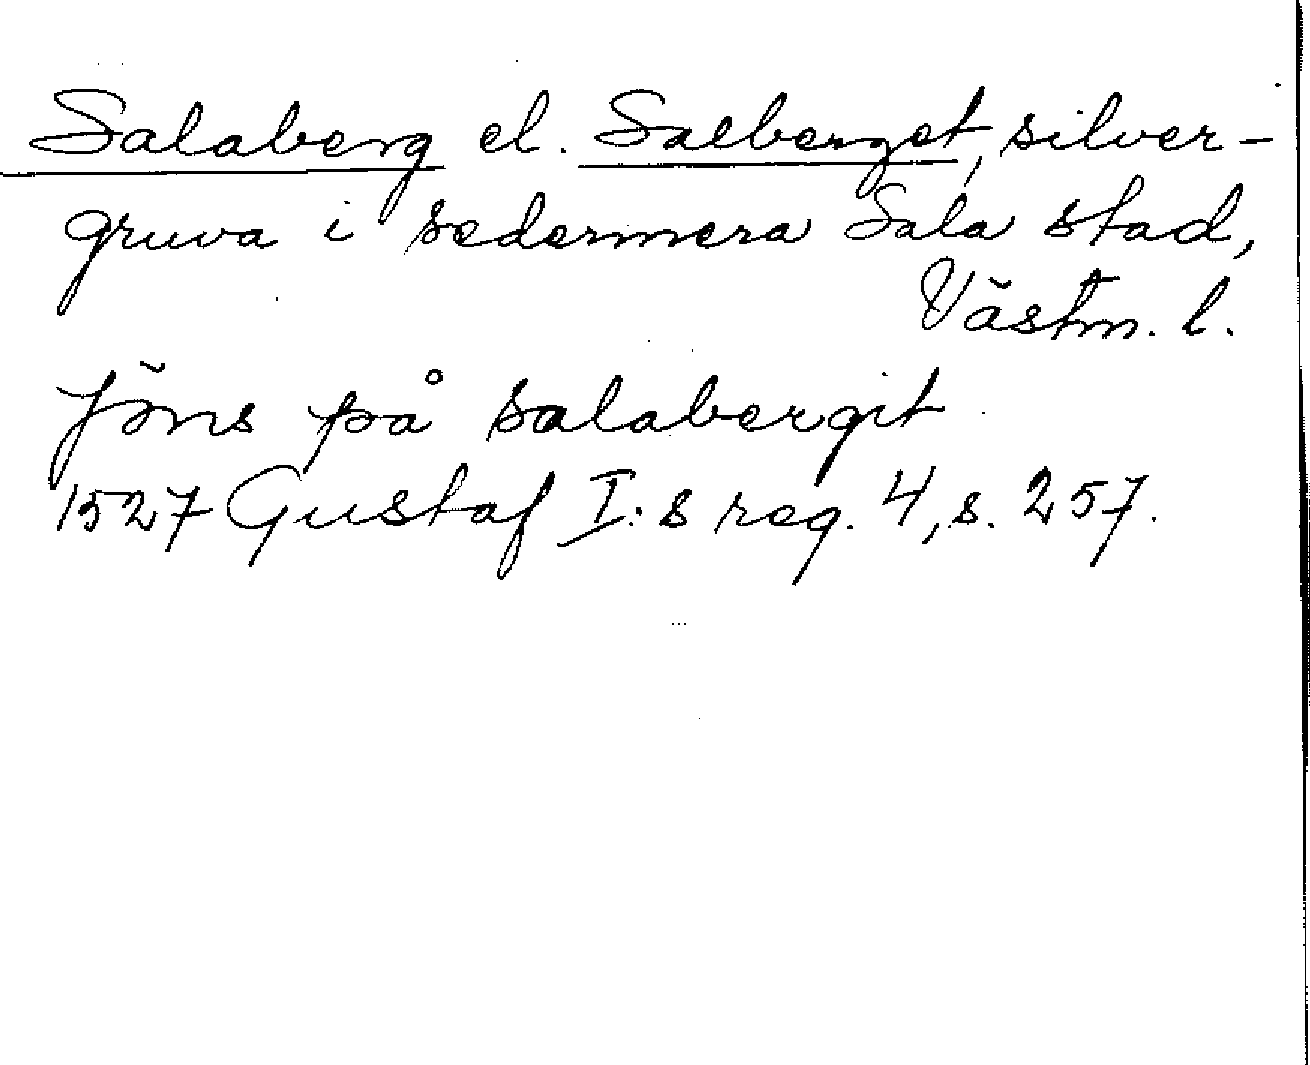 Salaberg el. Salberget, silver-
gruva i sedermera Sala stad,
Västm. l.
Jöns på salabergit
1527 Gustaf I:s reg. 4, s. 257.